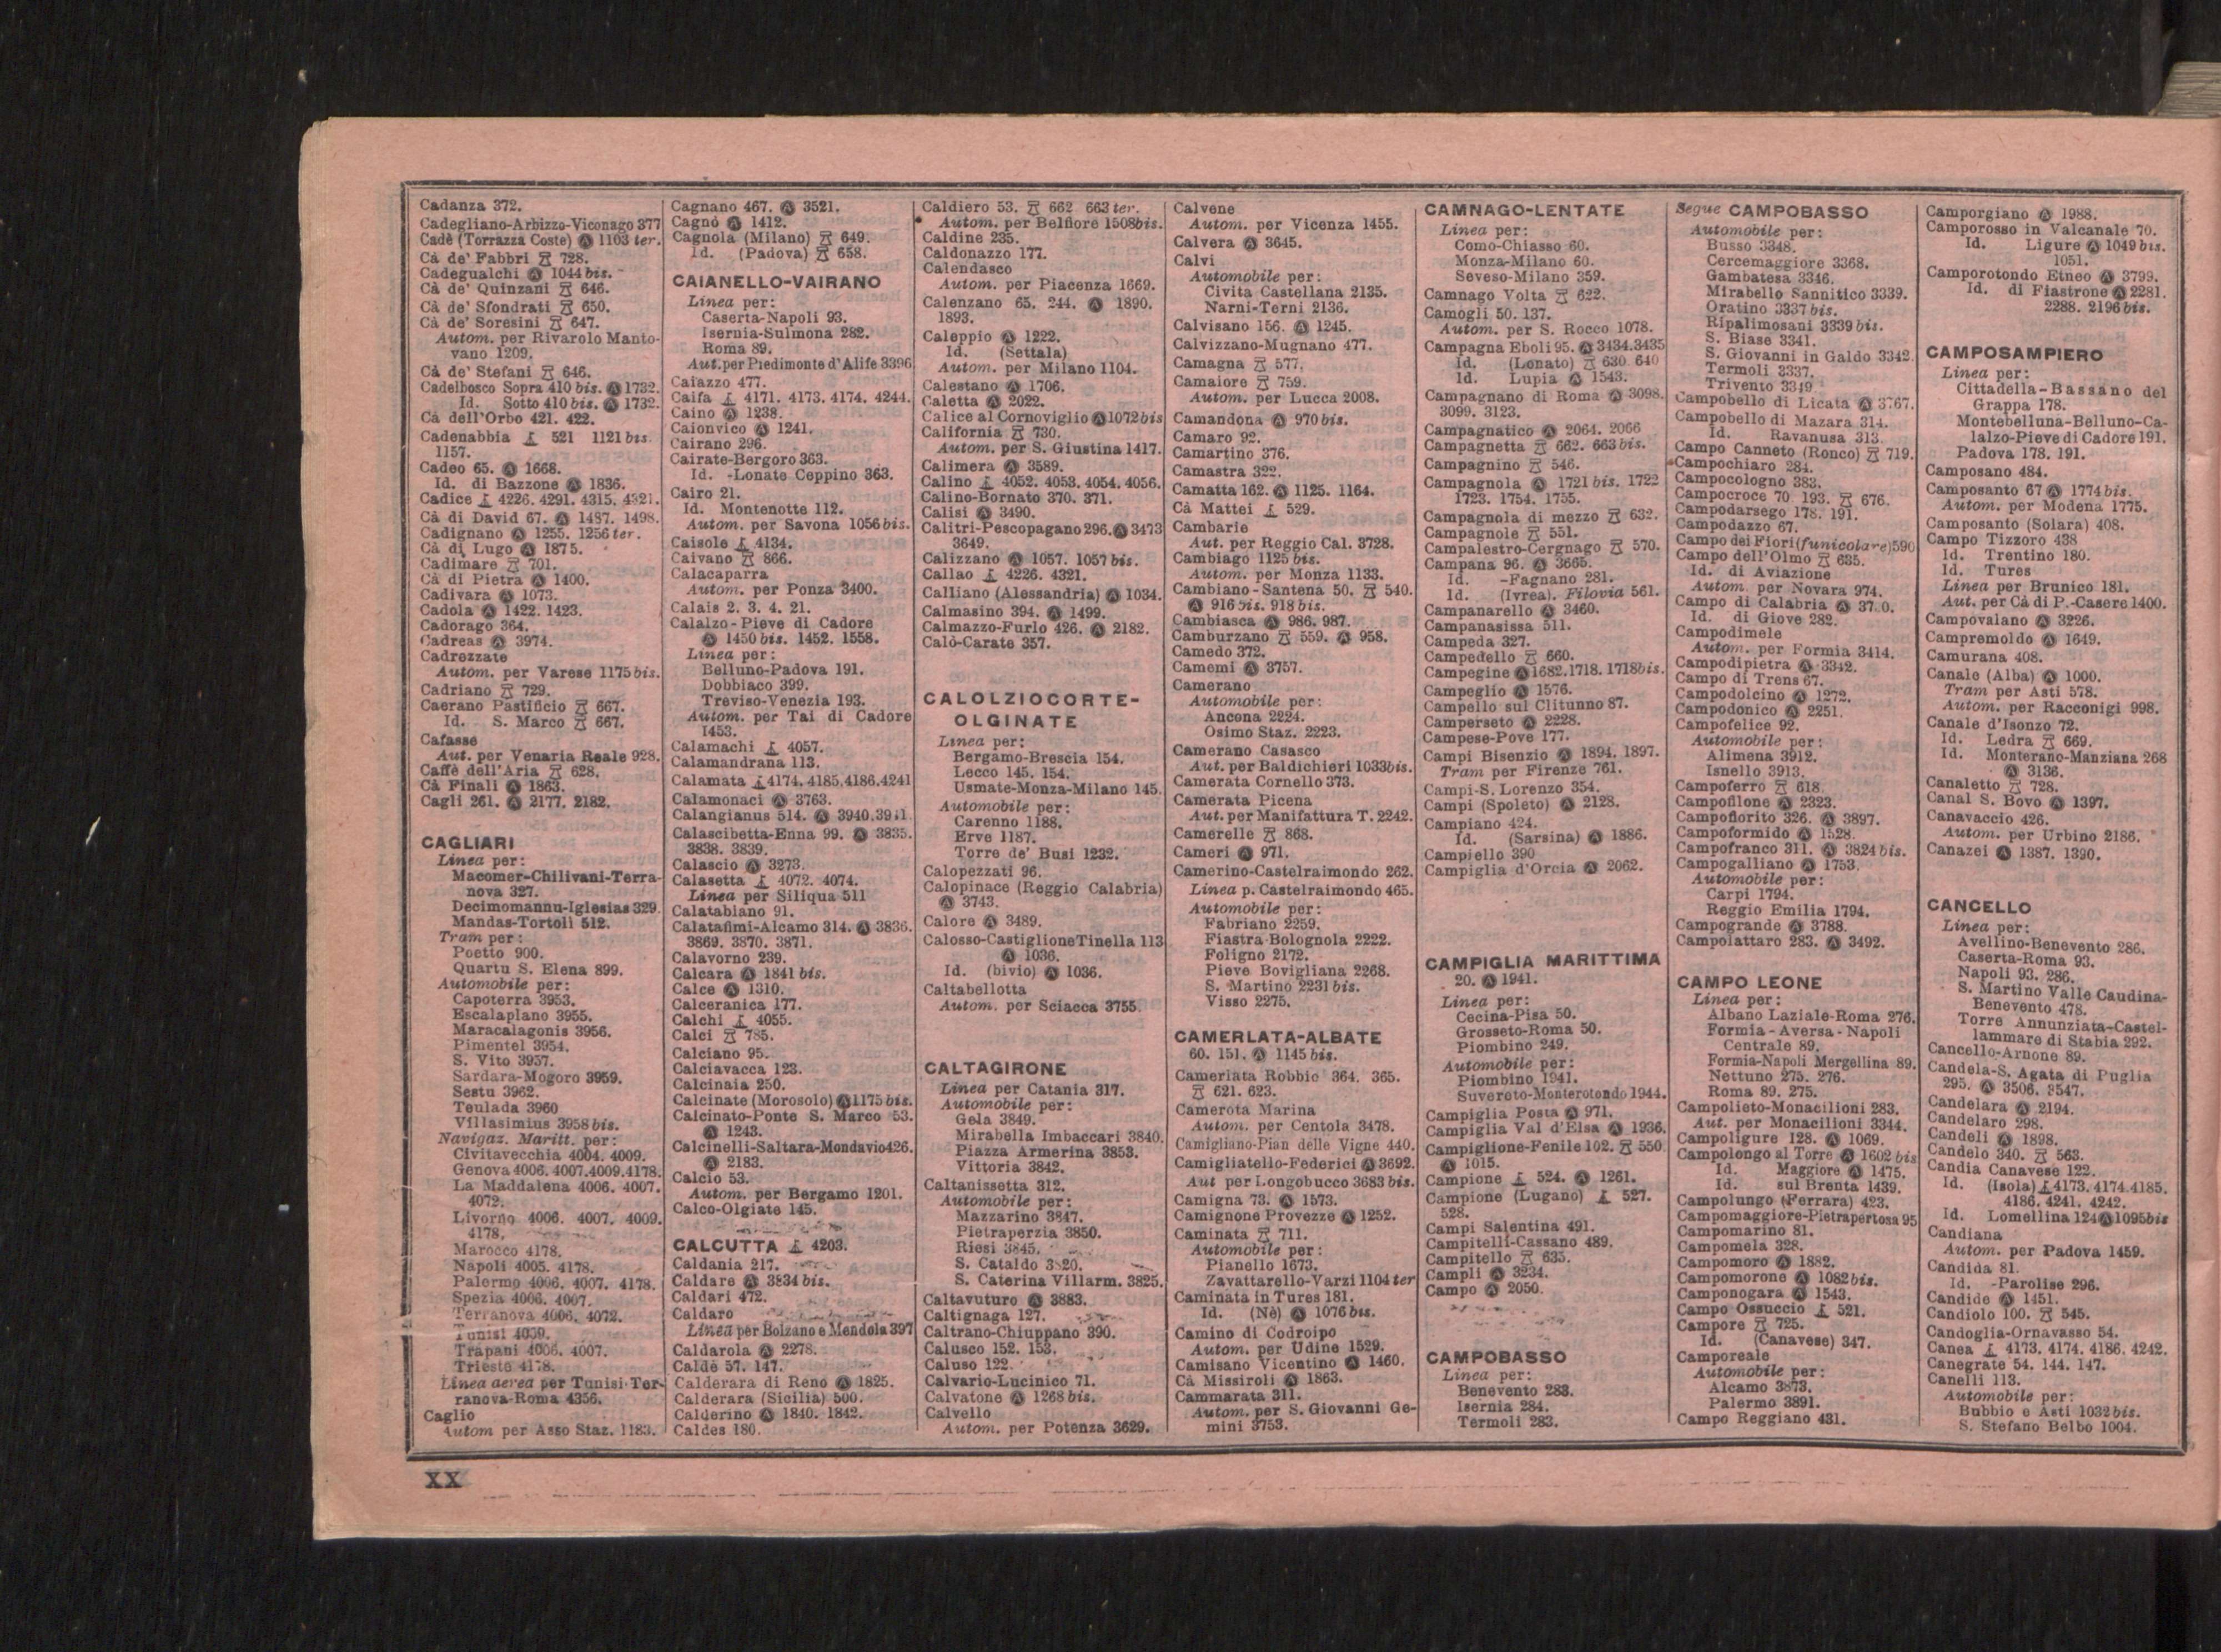 Cadanza 372.
Cadegliano-Arbizzo-Viconago 377
Cadè (Torrazza Coste) Ⓐ 1103 ter.
Cà de' Fabbri 728.
Cadegualchi Ⓐ 1044 bis.
Cà de' Quinzani 646.
Cà de' Sfondrati 650.
Cà de' Soresini 647.
Autom. per Rivarolo Manto-
vano 1209.
Cà de' Stefani 646.
Cadelbosco Sopra 410 bis. Ⓐ 1732.
Id. Sotto 410 bis. Ⓐ 1732.
Cà dell'Orbo 421. 422.
Cadenabbia 521 1121 bis.
1157.
Cadeo 65. Ⓐ 1668.
Id. di Bazzone Ⓐ 1836.
Cadice 4226. 4291. 4315. 4321.
Cà di David 67. Ⓐ 1487. 1498.
Cadignano Ⓐ 1255. 1256 ter.
Cà di Lugo Ⓐ 1875.
Cadimare 701.
Cà di Pietra Ⓐ 1400.
Cadivara Ⓐ 1073.
Cadola Ⓐ 1422. 1423.
Cadorago 364.
Cadreas Ⓐ 3974.
Cadrezzate
Autom. per Varese 1175 bis.
Cadriano 729.
Caerano Pastificio 667.
Id. S. Marco 667.
Cafasse
Aut. per Venaria Reale 928.
Caffè dell'Aria 628.
Cà Finali Ⓐ 1863.
Cagli 261. Ⓐ 2177. 2182.
CAGLIARI
Linea per:
Macomer-Chilivani-Terra-
nova 327.
Decimomannu-Iglesias 329.
Mandas-Tortolì 512.
Tram per:
Poetto 900.
Quartu S. Elena 899.
Automobile per:
Capoterra 3953.
Escalaplano 3955.
Maracalagonis 3956.
Pimentel 3954.
S. Vito 3957.
Sardara-Mogoro 3959.
Sestu 3962.
Teulada 3960
Villasimius 3958 bis.
Navigaz. Maritt. per:
Civitavecchia 4004. 4009.
Genova 4006. 4007. 4009. 4178.
La Maddalena 4006. 4007.
4072.
Livorno 4006. 4007. 4009.
4178.
Marocco 4178.
Napoli 4005. 4178.
Palermo 4006. 4007. 4178.
Spezia 4006. 4007.
Terranova 4006. 4072.
Tunisi 4009.
Trapani 4006. 4007.
Trieste 4178.
Linea aerea per Tunisi-Ter-
ranova-Roma 4356.
Caglio
Autom per Asso Staz. 1183.
Cagnano 467. Ⓐ 3521.
Cagnò Ⓐ 1412.
Cagnola (Milano) 649.
Id. (Padova) 658.
CAIANELLO-VAIRANO
Linea per:
Caserta-Napoli 93.
Isernia-Sulmona 282.
Roma 89.
Aut. per Piedimonte d'Alife 3396
Caiazzo 477.
Caifa 4171. 4173. 4174. 4244.
Caino Ⓐ 1238.
Caionvico Ⓐ 1241.
Cairano 296.
Cairate-Bergoro 363.
Id. -Lonate Ceppino 363.
Cairo 21.
Id. Montenotte 112.
Autom. per Savona 1056 bis.
Caisole 4134.
Caivano 866.
Calacaparra
Autom. per Ponza 3400.
Calais 2. 3. 4. 21.
Calalzo-Pieve di Cadore
Ⓐ 1450 bis. 1452. 1558.
Linea per:
Belluno-Padova 191.
Dobbiaco 399.
Treviso-Venezia 193.
Autom. per Tai di Cadore
1453.
Calamachi 4057.
Calamandrana 113.
Calamata 4174. 4185. 4186. 4241
Calamonaci Ⓐ 3763.
Calangianus 514. Ⓐ 3940. 3941.
Calascibetta-Enna 99. Ⓐ 3835.
3838. 3839.
Calascio Ⓐ 3273.
Calasetta 4072. 4074.
Linea per Siliqua 511
Calatabiano 91.
Calatafimi-Alcamo 314. Ⓐ 3836.
3869. 3870. 3871.
Calavorno 239.
Calcara Ⓐ 1841 bis.
Calce Ⓐ 1310.
Calceranica 177.
Calchi 4055.
Calci 785.
Calciano 95.
Calciavacca 123.
Calcinaia 250.
Calcinate (Morosolo) Ⓐ 1175 bis.
Calcinato-Ponte S. Marco 53.
Ⓐ 1243.
Calcinelli-Saltara-Mondavio 426.
Ⓐ 2183.
Calcio 53.
Autom. per Bergamo 1201.
Calco-Olgiate 145.
CALCUTTA 4203.
Caldania 217.
Caldare Ⓐ 3834 bis.
Caldari 472.
Caldaro
Linea per Bolzano e Mendola 397
Caldarola Ⓐ 2278.
Caldè 57. 147.
Calderara di Reno Ⓐ 1825.
Calderara (Sicilia) 500.
Calderino Ⓐ 1840. 1842.
Caldes 180.
Caldiero 53. 662 663 ter.
Autom. per Belfiore 1508 bis.
Caldine 235.
Caldonazzo 177.
Calendasco
Autom. per Piacenza 1669.
Calenzano 65. 244. Ⓐ 1890.
1893.
Caleppio Ⓐ 1222.
Id. (Settala)
Autom. per Milano 1104.
Calestano Ⓐ 1706.
Caletta Ⓐ 2022.
Calice al Cornoviglio Ⓐ 1072 bis
California 730.
Autom. per S. Giustina 1417.
Calimera Ⓐ 3589.
Calino 4052. 4053. 4054. 4056.
Calino-Bornato 370. 371.
Calisi Ⓐ 3490.
Calitri-Pescopagano 296. Ⓐ 3473
3649.
Calizzano Ⓐ 1057. 1057 bis.
Callao 4226. 4321.
Calliano (Alessandria) Ⓐ 1034.
Calmasino 394. Ⓐ 1499.
Calmazzo-Furlo 426. Ⓐ 2182.
Calò-Carate 357.
CALOLZIOCORTE-
OLGINATE
Linea per:
Bergamo-Brescia 154.
Lecco 145. 154.
Usmate-Monza-Milano 145.
Automobile per:
Carenno 1188.
Erve 1187.
Torre de' Busi 1232.
Calopezzati 96.
Calopinace (Reggio Calabria)
Ⓐ 3743.
Calore Ⓐ 3489.
Calosso-Castiglione Tinella 113
Ⓐ 1036.
Id. (bivio) Ⓐ 1036.
Caltabellotta
Autom. per Sciacca 3755
CALTAGIRONE
Linea per Catania 317.
Automobile per:
Gela 3849.
Mirabella Imbaccari 3840.
Piazza Armerina 3853.
Vittoria 3842.
Caltanissetta 312.
Automobile per:
Mazzarino 3847.
Pietraperzia 3850.
Riesi 3845.
S. Cataldo
S. Caterina Villarm. 3825.
Caltavuturo Ⓐ 3883.
Caltignaga 127.
Caltrano-Chiuppano 390.
Calusco 152. 153.
Caluso 122.
Calvario-Lucinico 71.
Calvatone Ⓐ 1268 bis.
Calvello
Autom. per Potenza 3629.
Calvene
Autom. per Vicenza 1455.
Calvera Ⓐ 3645.
Calvi
Automobile per:
Civita Castellana 2135.
Narni-Terni 2136.
Calvisano 156. Ⓐ 1245.
Calvizzano-Mugnano 477.
Camagna 577.
Camaiore 759.
Autom. per Lucca 2008.
Camandona Ⓐ 970 bis.
Camaro 92.
Camartino 376.
Camastra 322.
Camatta 162. Ⓐ 1125. 1164.
Cà Mattei 529.
Cambarie
Aut. per Reggio Cal. 3728.
Cambiago 1125 bis.
Autom. per Monza 1133.
Cambiano-Santena 50. 540.
Ⓐ 916 bis. 918 bis.
Cambiasca Ⓐ 986. 987.
Camburzano 559. Ⓐ 958.
Camedo 372.
Camemi Ⓐ 3757.
Camerano
Automobile per:
Ancona 2224.
Osimo Staz. 2223.
Camerano Casasco
Aut. per Baldichieri 1033 bis.
Camerata Cornello 373.
Camerata Picena
Aut. per Manifattura T. 2242.
Camerelle 868.
Cameri Ⓐ 971.
Camerino-Castelraimondo 262.
Linea p. Castelraimondo 465.
Automobile per:
Fabriano 2259.
Fiastra Bolognola 2222.
Foligno 2172.
Pieve Bovigliana 2268.
S. Martino 2231 bis.
Visso 2275.
CAMERLATA-ALBATE
60. 151. Ⓐ 1145 bis.
Camerlata Robbio 364. 365.
621. 623.
Camerota Marina
Autom. per Centola 3478.
Camigliano-Pian delle Vigne 440.
Camigliatello-Federici Ⓐ 3692.
Aut per Longobucco 3683 bis.
Camigna 73. Ⓐ 1573.
Camignone Provezze Ⓐ 1252.
Caminata 711.
Automobile per:
Pianello 1673.
Zavattarello-Varzi 1104 ter
Caminata in Tures 181.
Id. (Nè) Ⓐ 1076 bis.
Camino di Codroipo
Autom. per Udine 1529.
Camisano Vicentino Ⓐ 1460.
Cà Missiroli Ⓐ 1863.
Cammarata 311.
Autom. per S. Giovanni Ge-
mini 3753.
CAMNAGO-LENTATE
Linea per:
Como-Chiasso 60.
Monza-Milano 60.
Seveso-Milano 359.
Camnago Volta 622.
Camogli 50. 137.
Autom. per S. Rocco 1078.
Campagna Eboli 95. Ⓐ 3434. 3435
Id. (Lonato) 630 640
Id. Lupia Ⓐ 1543.
Campagnano di Roma Ⓐ 3098.
3099. 3123.
Campagnatico Ⓐ 2064. 2066
Campagnetta 662. 663 bis.
Campagnino 546.
Campagnola Ⓐ 1721 bis. 1722
1723. 1754. 1755.
Campagnola di mezzo 632.
Campagnole 551.
Campalestro-Cergnago 570.
Campana 96. Ⓐ 3665.
Id. -Fagnano 281.
Id. (Ivrea). Filovia 561.
Campanarello Ⓐ 3460.
Campanasissa 511.
Campeda 327.
Campedello 660.
Campegine Ⓐ 1682. 1718. 1718 bis.
Campeglio Ⓐ 1576.
Campello sul Clitunno 87.
Camperseto Ⓐ 2228.
Campese-Pove 177.
Campi Bisenzio Ⓐ 1894. 1897.
Tram per Firenze 761.
Campi-S. Lorenzo 354.
Campi (Spoleto) Ⓐ 2128.
Campiano 424.
Id. (Sarsina) Ⓐ 1886.
Campiello 390
Campiglia d'Orcia Ⓐ 2062.
CAMPIGLIA MARITTIMA
20. Ⓐ 1941.
Linea per:
Cecina-Pisa 50.
Grosseto-Roma 50.
Piombino 249.
Automobile per:
Piombino 1941.
Suvereto-Monterotondo 1944.
Campiglia Posta Ⓐ 971.
Campiglia Val d'Elsa Ⓐ 1936.
Campiglione-Fenile 102. 550
Ⓐ 1015.
Campione 524. Ⓐ 1261.
Campione (Lugano) 527.
528.
Campi Salentina 491.
Campitelli-Cassano 489.
Campitello 635.
Campli Ⓐ 3234.
Campo Ⓐ 2050.
CAMPOBASSO
Linea per:
Benevento 283.
Isernia 284.
Termoli 283.
Segue CAMPOBASSO
Automobile per:
Busso 3348.
Cercemaggiore 3368.
Gambatesa 3346.
Mirabello Sannitico 3339.
Oratino 3337 bis.
Ripalimosani 3339 bis.
S. Biase 3341.
S. Giovanni in Galdo 3342.
Termoli 3337.
Trivento 3349.
Campobello di Licata Ⓐ 3767.
Campobello di Mazara 314.
Id. Ravanusa 313.
Campo Canneto (Ronco) 719.
Campochiaro 284.
Campocologno 383.
Campocroce 70 193. 676.
Campodarsego 178. 191.
Campodazzo 67.
Campo dei Fiori (funicolare) 590
Campo dell'Olmo 635.
Id. di Aviazione
Autom. per Novara 974.
Campo di Calabria Ⓐ
Id. di Giove 282.
Campodimele
Autom. per Formia 3414.
Campodipietra Ⓐ 3342.
Campo di Trens 67.
Campodolcino Ⓐ 1272.
Campodonico Ⓐ 2251.
Campofelice 92.
Automobile per:
Alimena 3912.
Isnello 3913.
Campoferro 618.
Campofilone Ⓐ 2323.
Campofiorito 326. Ⓐ 3897.
Campoformido Ⓐ 1528.
Campofranco 311. Ⓐ 3824 bis.
Campogalliano Ⓐ 1753.
Automobile per:
Carpi 1794.
Reggio Emilia 1794.
Campogrande Ⓐ 3788.
Campolattaro 283. Ⓐ 3492.
CAMPO LEONE
Linea per:
Albano Laziale-Roma 276.
Formia-Aversa-Napoli
Centrale 89.
Formia-Napoli Mergellina 89.
Nettuno 275. 276.
Roma 89. 275.
Campolieto-Monacilioni 283.
Aut. per Monacilioni 3344.
Campoligure 128. Ⓐ 1069.
Campolongo al Torre Ⓐ 1602 bis
Id. Maggiore Ⓐ 1475.
Id. sul Brenta 1439.
Campolungo (Ferrara) 423.
Campomaggiore-Pietrapertosa 95
Campomarino 81.
Campomela 328.
Campomoro Ⓐ 1882.
Campomorone Ⓐ 1082 bis.
Camponogara Ⓐ 1543.
Campo Ossuccio 521.
Campore 725.
Id. (Canavese) 347.
Camporeale
Automobile per:
Alcamo 3873.
Palermo 3891.
Campo Reggiano 431.
Camporgiano Ⓐ 1988.
Camporosso in Valcanale 70.
Id. Ligure Ⓐ 1049 bis.
1051.
Camporotondo Etneo Ⓐ 3799.
Id. di Fiastrone Ⓐ 2281.
2288. 2196 bis.
CAMPOSAMPIERO
Linea per:
Cittadella-Bassano del
Grappa 178.
Montebelluna-Belluno-Ca-
lalzo-Pieve di Cadore 191.
Padova 178. 191.
Camposano 484.
Camposanto 67 Ⓐ 1774 bis.
Autom. per Modena 1775.
Camposanto (Solara) 408.
Campo Tizzoro 438
Id. Trentino 180.
Id. Tures
Linea per Brunico 181.
Aut. per Cà di P.-Casere 1400.
Campovalano Ⓐ 3226.
Campremoldo Ⓐ 1649.
Camurana 408.
Canale (Alba) Ⓐ 1000.
Tram per Asti 578.
Autom. per Racconigi 998.
Canale d'Isonzo 72.
Id. Ledra 669.
Id. Monterano-Manziana 268
Ⓐ 3136.
Canaletto 728.
Canal S. Bovo Ⓐ 1397.
Canavaccio 426.
Autom. per Urbino 2186.
Canazei Ⓐ 1387. 1390.
CANCELLO
Linea per:
Avellino-Benevento 286.
Caserta-Roma 93.
Napoli 93. 286.
S. Martino Valle Caudina-
Benevento 478.
Torre Annunziata-Castel-
lammare di Stabia 292.
Cancello-Arnone 89.
Candela-S. Agata di Puglia
295. Ⓐ 3506. 3547.
Candelara Ⓐ 2194.
Candelaro 298.
Candeli Ⓐ 1898.
Candelo 340. 563.
Candia Canavese 122.
Id. (Isola) 4173. 4174. 4185.
4186. 4241. 4242.
Id. Lomellina 124 Ⓐ 1095 bis
Candiana
Autom. per Padova 1459.
Candida 81.
Id. -Parolise 296.
Candide Ⓐ 1451.
Candiolo 100. 545.
Candoglia-Ornavasso 54.
Canea 4173. 4174. 4186. 4242.
Canegrate 54. 144. 147.
Canelli 113.
Automobile per:
Bubbio e Asti 1032 bis.
S. Stefano Belbo 1004.
XX